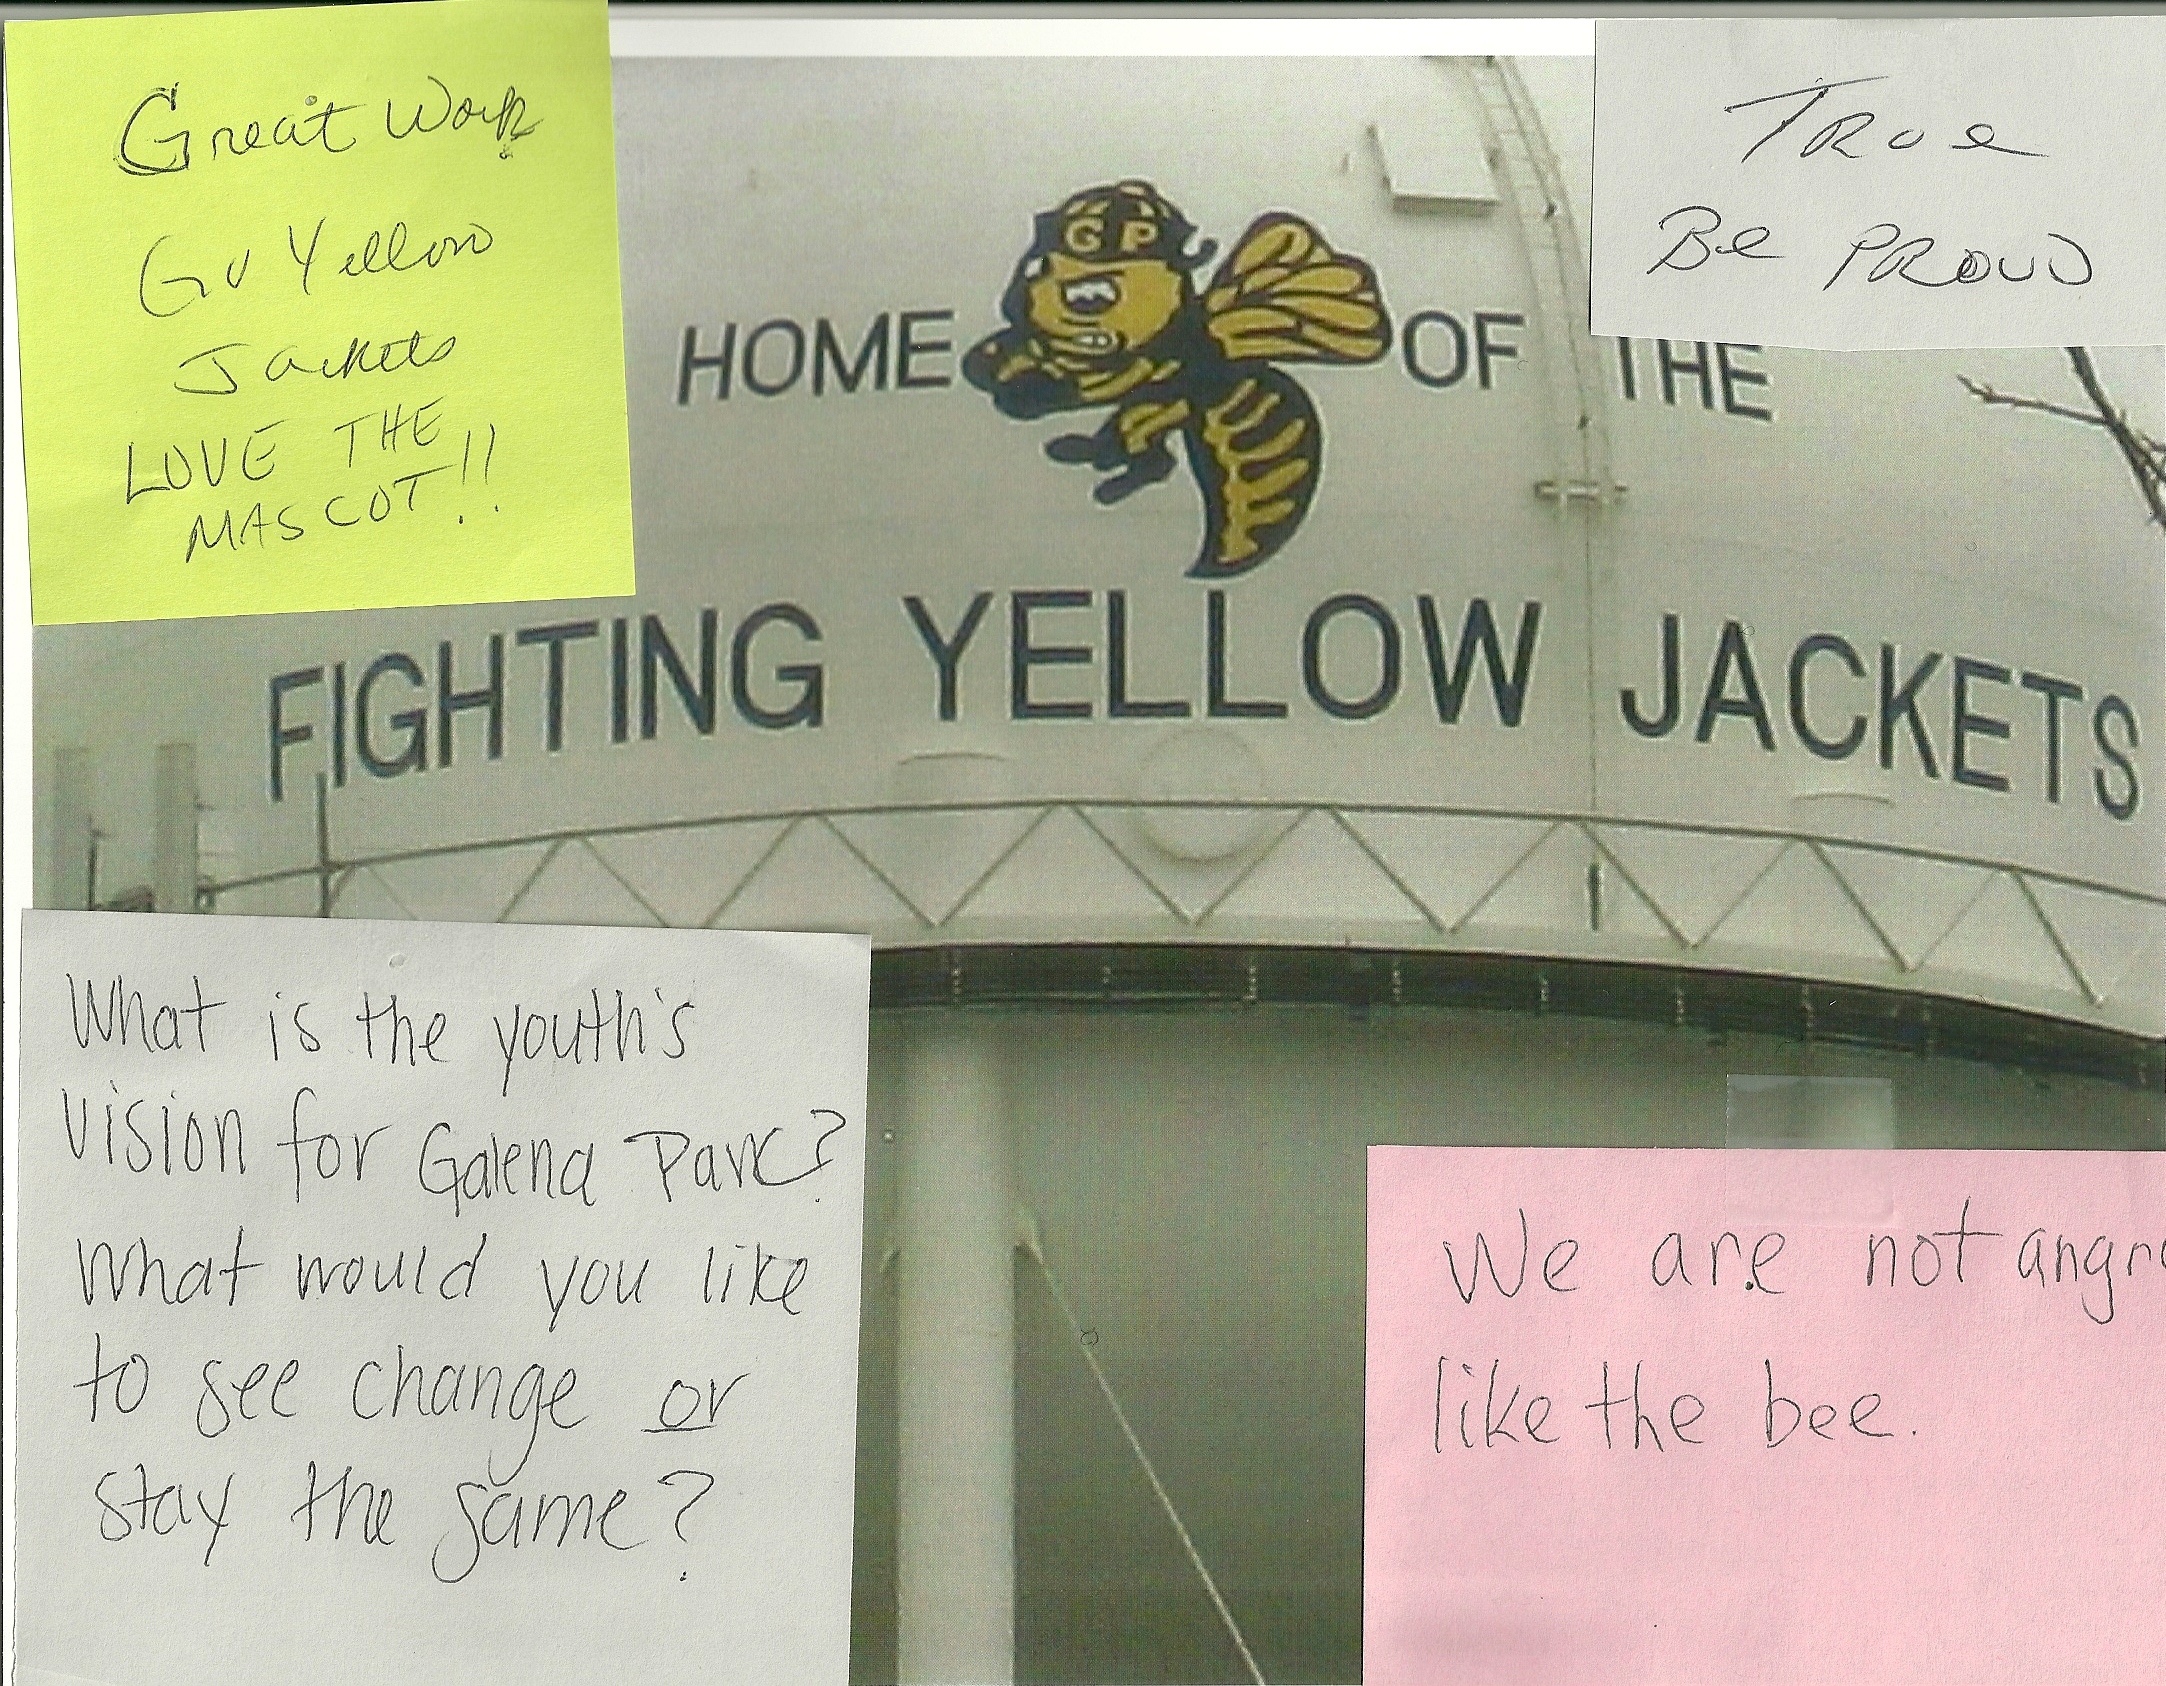 Great Work
Go Yellow
Jackets
LOVE THE
MASCOT!!
True
Be PROUD
GP
HOME OF THE
FIGHTING YELLOW JACKETS
What is the youth's
vision for Galena Park?
What would you like
to see change or
stay the same?
We are not angr
like the bee.